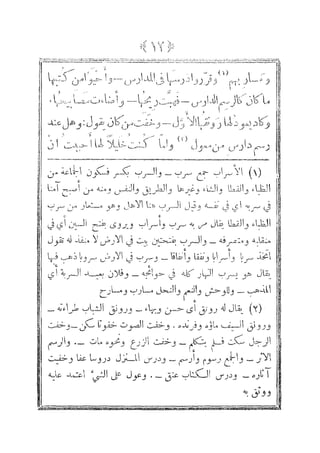 ﴿١٢﴾
ومساربهم (١) وقرروا درسها فى المدارس — وأحيوا من كتبها
ما كان كالرسم الدارس — فهبت ريحها — وأضاءت مصابيحها،
وكاد يعود لها رونقها الأول — وخفت من كان يقول: وهل عند
رسم دارس من معول (٢) وأما كنت خليلاً لها أحببت أن
(١) الأسراب جمع سرب — والسرب بكسر فسكون الجماعة من
الظباء والقطا والشاء وغيرها والطريق والنفس ومنه من أصبح آمنا
في سربه أي في نفسه وقيل السرب هنا الاهل وهو مستعار من سرب
الظباء والقطا يقال مر به سرب وأسراب ويروى بفتح السين أي في
متقلبه ومنصرفه — والسرب بفتحتين بيت في الارض لا منفذ له تقول
اتخذ سربا وأسرابا ونفقا وأنفاقا — وسرب في الارض سروبا ذهب فيها
يقال هو يسرب النهار كله في حوائجه — وفلان بعيد السربة أي
المذهب — وللوحش والنعم والنحل مسارب ومسارح
(٢) يقال له رونق أي حسن وبهاء — ورونق الشباب طراءته —
ورونق السيف ماؤه وفرنده . وخفت الصوت خفوتا سكن — وخفت
الرجل سكت فلم يتكلم — وخفت الزرع ونحوه مات — . والرسم
الاثر — والجمع رسوم وأرسم — ودرس المنزل دروسا عفا وخفيت
آثاره — ودرس الكتاب عتق — . وعول على الشيء اعتمد عليه
ووثق به